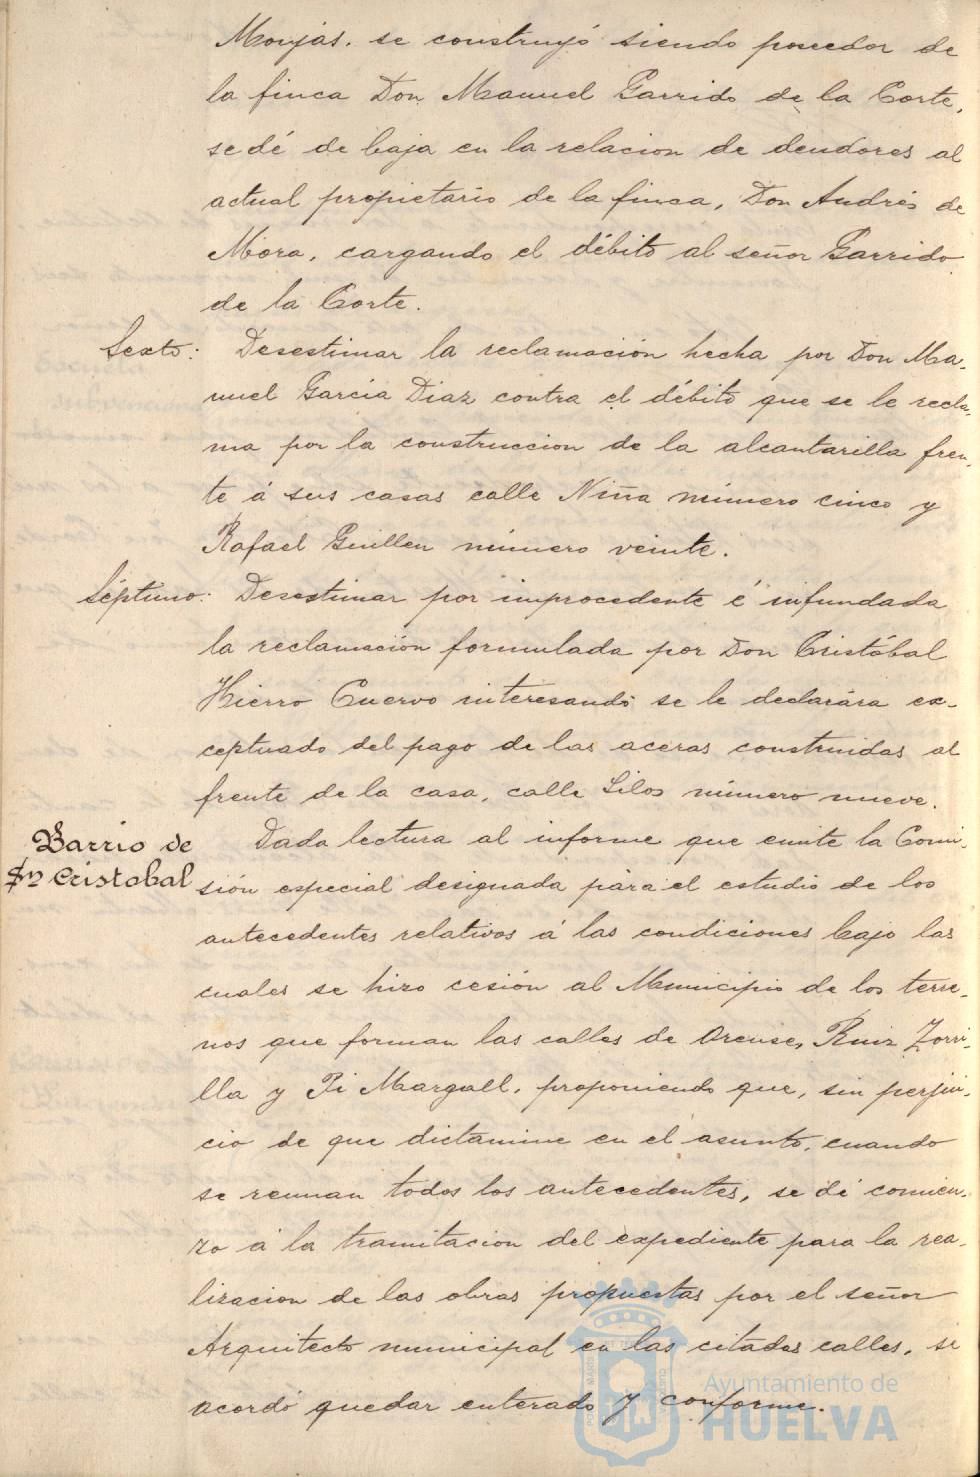 Monjas, se construyó siendo poseedor de
la finca Don Manuel Garrido de la Corte,
se dé de baja en la relacion de deudores al
actual propietario de la finca, Don Andrés de
Mora, cargando el débito al señor Garrido
de la Corte.
Sexto: Desestimar la reclamación hecha por Don Ma-
nuel García Diaz contra el débito que se le recla-
ma por la construccion de la alcantarilla fren-
te á sus casas calle Niña número cinco y
Rafael Guillen número veinte.
Séptimo: Desestimar por improcedente é infundada
la reclamación formulada por Don Cristóbal
Hierro Cuervo interesando se le declarára ex-
ceptuado del pago de las aceras construidas al
frente de la casa, calle Silos número nueve.
Barrio de
Sn Cristobal
Dada lectura al informe que emite la Comi-
sión especial designada pára el estudio de los
antecedentes relativos á las condiciones bajo las
cuales se hizo cesión al Municipio de los terre-
nos que forman las calles de Orense, Ruiz Zorri-
lla y Pi Margall, proponiendo que, sin perjui-
cio de que dictamine en el asunto, cuando
se reunan todos los antecedentes, se dé comien-
zo á la tramitacion del expediente para la rea-
lizacion de las obras propuestas por el señor
Arquitecto municipal en las citadas calles, se
acordó quedar enterado y conforme.
Ayuntamiento de
HUELVA